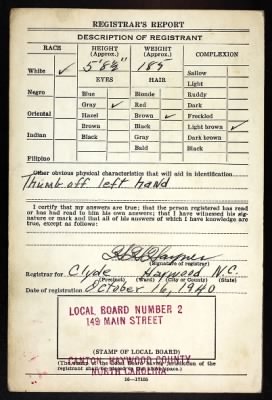 REGISTRAR'S REPORT
DESCRIPTION OF REGISTRANT
RACE HEIGHT (Approx.) WEIGHT (Approx.) COMPLEXION
White ✓ 5' 8½" 185 Sallow
EYES HAIR Light
Negro Blue Blonde Ruddy
Gray ✓ Red Dark
Oriental Hazel Brown ✓ Freckled
Brown Black Light brown ✓
Indian Black Gray Dark brown
Bald Black
Filipino
Other obvious physical characteristics that will aid in identification
Thumb off left hand
I certify that my answers are true; that the person registered has read
or has had read to him his own answers; that I have witnessed his sig-
nature or mark and that all of his answers of which I have knowledge
are true, except as follows:
(Signature of registrar)
Registrar for Clyde Haywood N.C.
(Precinct) (Ward) (City or County) (State)
Date of registration October 16, 1940
LOCAL BOARD NUMBER 2
149 MAIN STREET
CANTON, HAYWOOD COUNTY
NORTH CAROLINA
(STAMP OF LOCAL BOARD)
16-17105